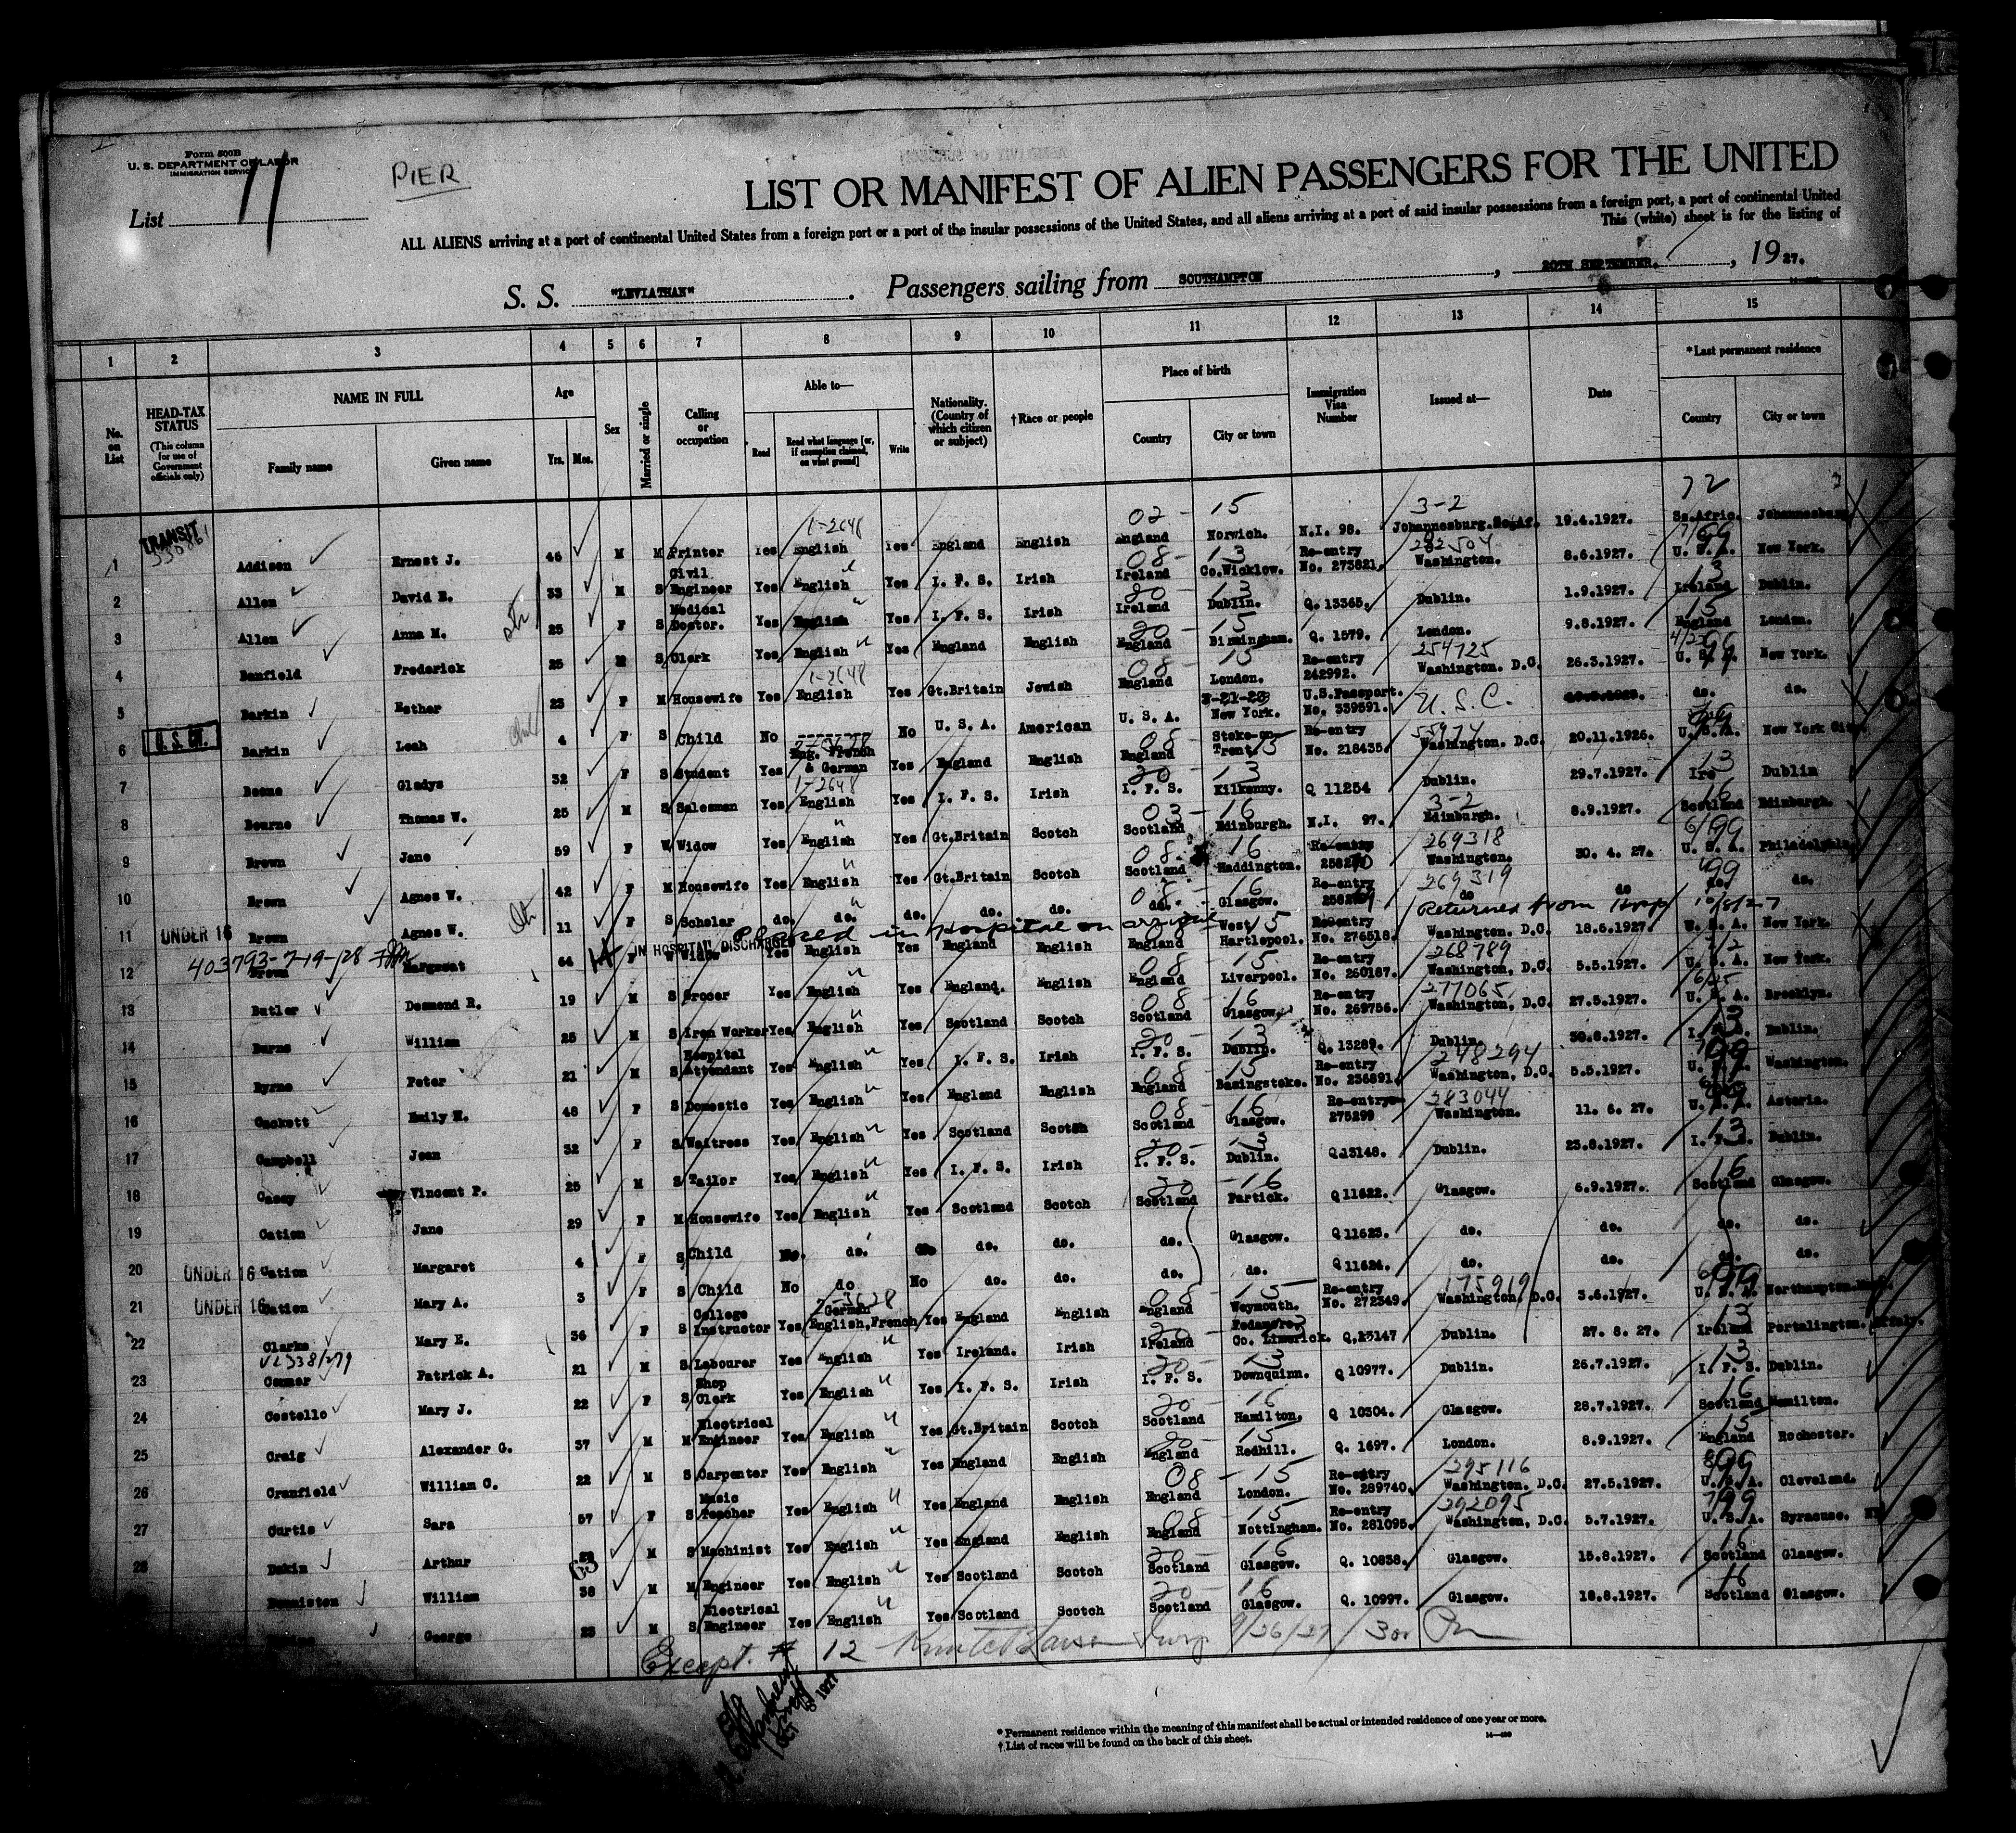 Form 500B
U. S. DEPARTMENT OF LABOR
IMMIGRATION SERVICE
PIER
List 11
LIST OR MANIFEST OF ALIEN PASSENGERS FOR THE UNITED
ALL ALIENS arriving at a port of continental United States from a foreign port or a port of the insular possessions of the United States, and all aliens arriving at a port of said insular possessions from a foreign port, a port of continental United
This (white) sheet is for the listing of
S. S. "LEVIATHAN". Passengers sailing from SOUTHAMPTON, 20TH SEPTEMBER, 1927.
1 2 3 4 5 6 7 8 9 10 11 12 13 14 15
No. on List
HEAD-TAX STATUS
(This column for use of Government officials only)
NAME IN FULL
Family name Given name
Age
Yrs. Mos.
Sex
Married or single
Calling or occupation
Able to—
Read Read what language [or, if exemption claimed, on what ground] Write
Nationality. (Country of which citizen or subject)
†Race or people
Place of birth
Country City or town
Immigration Visa Number
Issued at—
Date
*Last permanent residence
Country City or town
1 TRANSIT Addison Ernest J. 46 M M Printer Yes English 1-2648 Yes England English 02- England 15 Norwich. N.I. 98. 3-2 Johannesburg.So.Af. 19.4.1927. 72 So.Afric. Johannesburg
2 Allen David E. 33 M S Civil Engineer Yes English Yes I. F. S. Irish 08- Ireland 13 Co.Wicklow. Re-entry No. 273821. 282504 Washington. 8.6.1927. U. S. A. New York.
3 Allen Anna M. 25 F S Medical Doctor. Yes English Yes I. F. S. Irish 20- Ireland 13 Dublin. Q. 13365. Dublin. 1.9.1927. 13 Ireland Dublin.
4 Banfield Frederick 25 M S Clerk Yes English Yes England English 20- England 15 Birmingham. Q. 1579. London. 9.8.1927. 15 England London.
5 Barkin Esther 23 F M Housewife Yes English 1-2648 Yes Gt.Britain Jewish 08- England 15 London. Re-entry 242992. 254725 Washington. D.C. 26.3.1927. U. S. A. New York.
6 U. S. CIT. Barkin Leah 4 F S Child No No U. S. A. American U. S. A. New York. U.S.Passport. No. 339591. U.S.C. do. do.
7 Boone Gladys 32 F S Student Yes Eng. French & German Yes England English 08- England Stoke-on-Trent 15 Re-entry No. 218435. 55974 Washington. D.C. 20.11.1926. U.S.A. New York City
8 Bourne Thomas W. 25 M S Salesman Yes English 1-2648 Yes I. F. S. Irish 20- I. F. S. 13 Kilkenny. Q 11254 Dublin. 29.7.1927. 13 Dublin
9 Brown Jane 59 F W Widow Yes English Yes Gt.Britain Scotch 03- Scotland 16 Edinburgh. N.I. 97. 3-2 Edinburgh. 8.9.1927. 16 Scotland Edinburgh.
10 Brown Agnes W. 42 F M Housewife Yes English Yes Gt.Britain Scotch 08- Scotland 16 Haddington. Re-entry 269318 Washington. 30. 4. 27. 6/99 U. S. A. Philadelphia.
11 UNDER 16 Brown Agnes W. 11 F S Scholar do. do. do. do. do. 08- do. 16 Glasgow. Re-entry 269319 do do 99 do. do.
Placed in Hospital on arrival Returned from Hosp 10/8/27
403793-7-19-28
12 Brown Margaret 64 F W Widow IN HOSPITAL DISCHARGED Yes English Yes England English 08 England 15 West Hartlepool. Re-entry No. 276518. Washington. D.C. 18.6.1927. U. S. A. New York.
13 Butler Desmond R. 19 M S Grocer Yes English Yes England. English 08- England 15 Liverpool. Re-entry No. 260187. 268789 Washington, D.C. 5.5.1927. U. S. A. New York.
14 Burns William 25 M S Iron Worker Yes English Yes Scotland Scotch 08- Scotland 16 Glasgow. Re-entry No. 269756. 277065 Washington, D.C. 27.5.1927. U. S. A. Brooklyn.
15 Byrne Peter 21 M S Hospital Attendant Yes English Yes I. F. S. Irish 20- I. F. S. 13 Dublin. Q. 13289. Dublin. 30.8.1927. 13 Dublin.
16 Cackett Emily E. 48 F S Domestic Yes English Yes England English 08- England 15 Basingstoke. Re-entry No. 236891. 248294 Washington, D.C. 5.5.1927. Washington.
17 Campbell Jean 32 F S Waitress Yes English Yes Scotland Scotch 08- Scotland 16 Glasgow. Re-entry 275299 283044 Washington. 11. 6. 27. Astoria.
18 Casey Vincent P. 25 M S Tailor Yes English Yes I. F. S. Irish 20- I. F. S. 13 Dublin. Q13148. Dublin. 23.8.1927. 13 Dublin.
19 Cation Jane 29 F M Housewife Yes English Yes Scotland Scotch 20- Scotland 16 Partick. Q11622. Glasgow. 6.9.1927. 16 Scotland Glasgow.
20 UNDER 16 Cation Margaret 4 F S Child No. do. do. do. do. Glasgow. Q11623. do. do. do. do.
21 UNDER 16 Cation Mary A. 3 F S Child No do No do. do. do. do. Q11624. do. do. do. do.
22 Clarke Mary E. 36 F S College Instructor Yes German English, French Yes England English 08- England 15 Weymouth. Re-entry No. 272349. 175919 Washington, D.C. 3.6.1927. Northampton.
23 Connor Patrick A. 21 M S Labourer Yes English Yes Ireland. Irish 20- Ireland Co. Limerick. Q.13147 Dublin. 27. 8. 27. 13 Ireland Portalington.
24 Costello Mary J. 22 F S Shop Clerk Yes English Yes I. F. S. Irish 20- I. F. S. 13 Downquinn. Q 10977. Dublin. 26.7.1927. 13 I. F. S. Dublin.
25 Craig Alexander G. 37 M M Electrical Engineer Yes English Yes Gt.Britain Scotch 20- Scotland 16 Hamilton. Q 10304. Glasgow. 28.7.1927. 16 Scotland Hamilton.
26 Cranfield William C. 22 M S Carpenter Yes English Yes England English 20- England 15 Redhill. Q. 1697. London. 8.9.1927. 15 England Rochester.
27 Curtis Sara 57 F S Music Teacher Yes English Yes England English 08- England 15 London. Re-entry No. 289740. 295116 Washington, D.C. 27.5.1927. 99 U. S. A. Cleveland.
28 Dakin Arthur 63 M S Machinist Yes English Yes England English 08- England 15 Nottingham. Re-entry No. 281095. 292095 Washington, D.C. 5.7.1927. 99 U. S. A. Syracuse.
Denniston William 38 M M Engineer Yes English Yes Scotland Scotch 20- Scotland 16 Glasgow. Q. 10838. Glasgow. 15.8.1927. 16 Scotland Glasgow.
George 23 M S Electrical Engineer Yes English Yes Scotland Scotch 20- Scotland 16 Glasgow. Q. 10997. Glasgow. 18.8.1927. 16 Scotland Glasgow.
Except # 12 9/26/27
* Permanent residence within the meaning of this manifest shall be actual or intended residence of one year or more.
† List of races will be found on the back of this sheet.